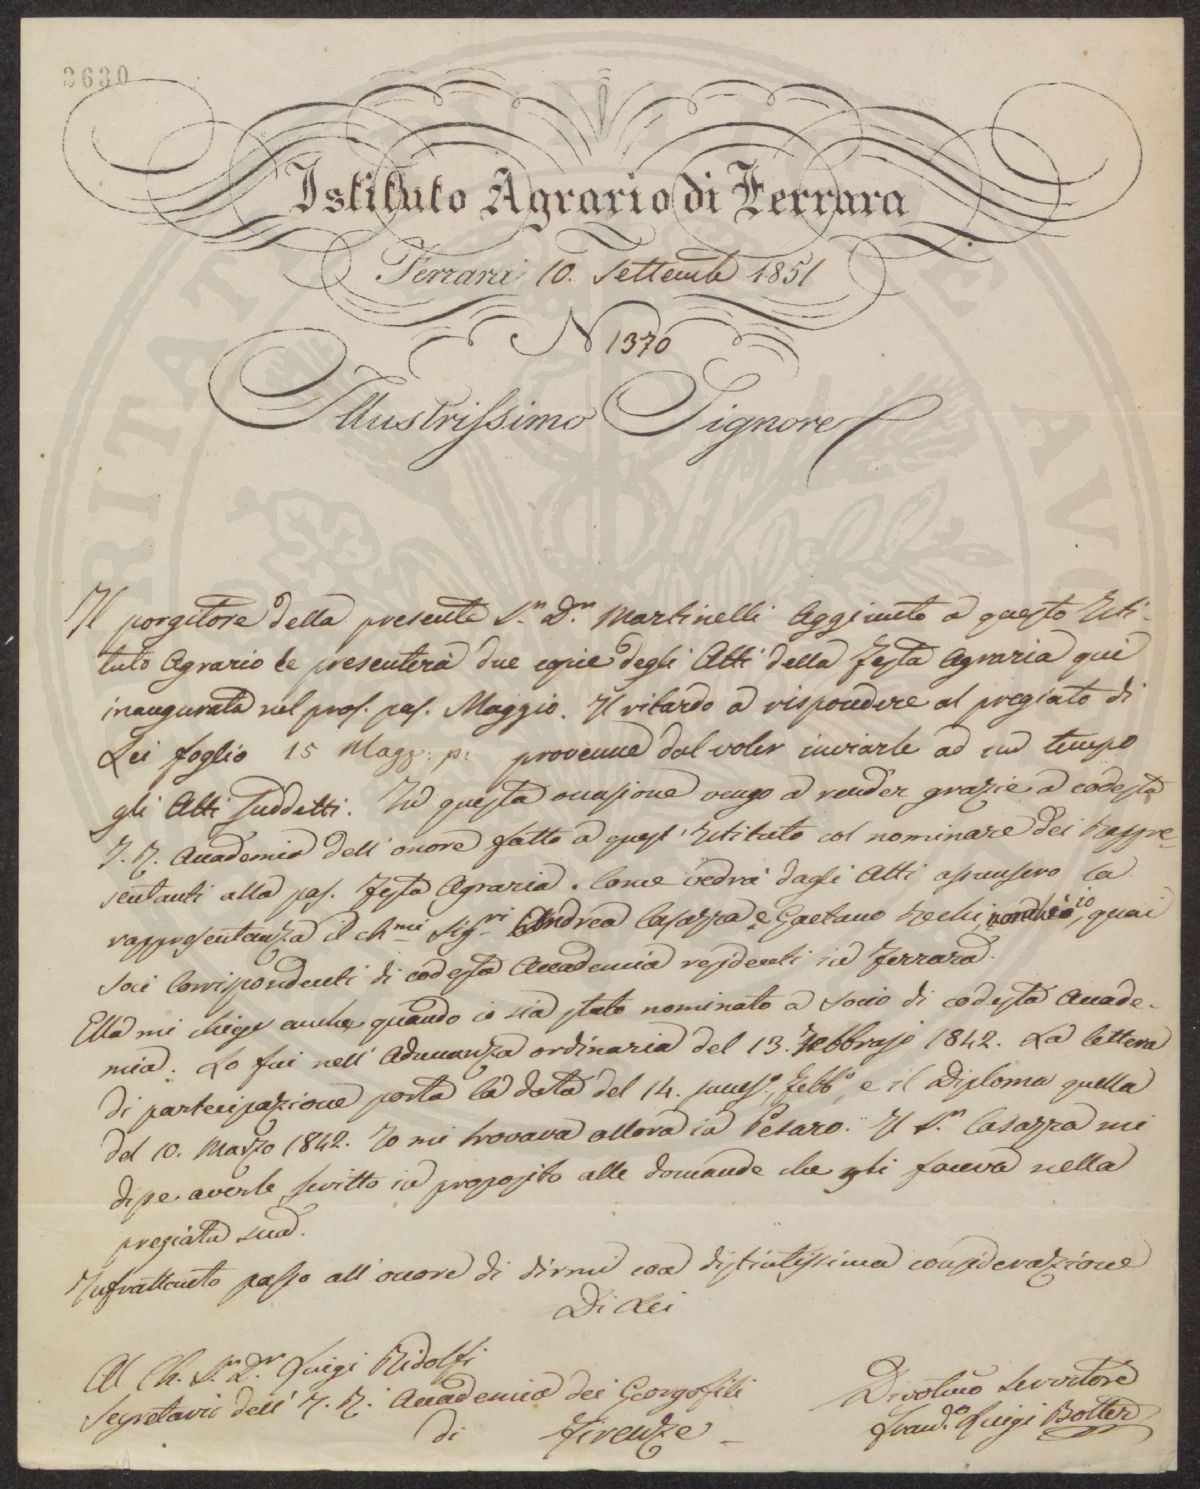 2630
Istituto Agrario di Ferrara
Ferrara 10. Settembe 1851
N 1370
Illustrissimo Signore
Il porgitore della presente S.r D.r Martinelli Aggiunto a questo Isti-
tuto Agrario le presenterà due copie degli Atti della Festa Agraria qui
inaugurata nel pros. pas. Maggio. Il ritardo a rispondere al pregiato di
Lei foglio 15 Magg: p: provenne dal voler inviarle ad un tempo
gli Atti suddetti. In questa occasione vengo a render grazie a codesta
I. R. Accademia dell'onore fatto a quest'Istituto col nominare dei Rappre-
sentanti alla pas. Festa Agraria. Come vedrà dagli Atti assunsero la
rappresentanza il ch.mi Sig.ri Andrea Casazza e Gaetano Recchi, quai
soci Corrispondenti di codesta Accademia residenti in Ferrara.
Ella mi chiese anche quando io sia stato nominato a socio di codesta Accade-
mia. Lo fui nell'Adunanza ordinaria del 13. Febbrajo 1842. La lettera
di partecipazione porta la data del 14. suss.o Febb.o, e il Diploma quella
del 10. Marzo 1842. Io mi trovava allora in Pesaro. Il S.r Casazza mi
disse averle scritto in proposito alle domande che gli faceva nella
pregiata sua.
Infrattanto passo all'onore di dirmi con distintissima considerazione
Di Lei
Al Ch. S.r D.r Luigi Ridolfi
Segretario dell'I. R. Accademia dei Georgofili
di Firenze
Divotmo Servitore
Fran.co Luigi Botter